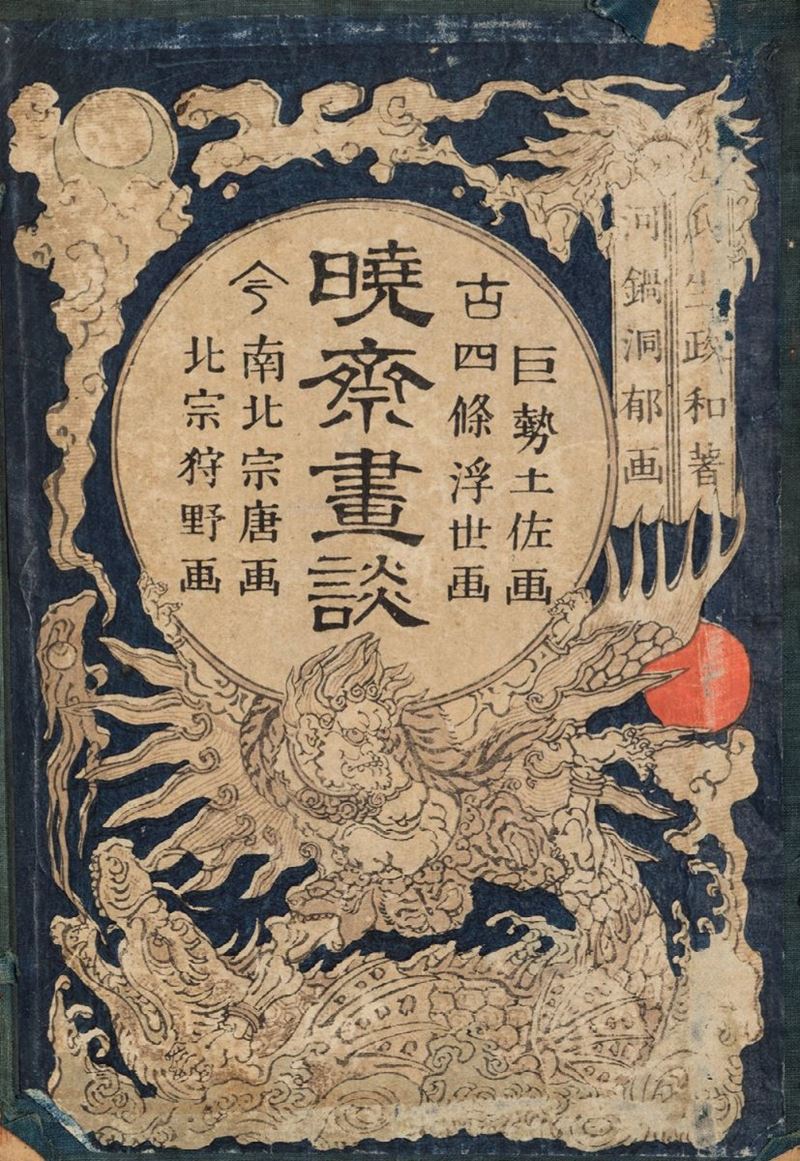 氏生政和著
河鍋洞郁画
巨勢土佐画
古四條浮世画
曉齋畫談
今南北宗唐画
北宗狩野画